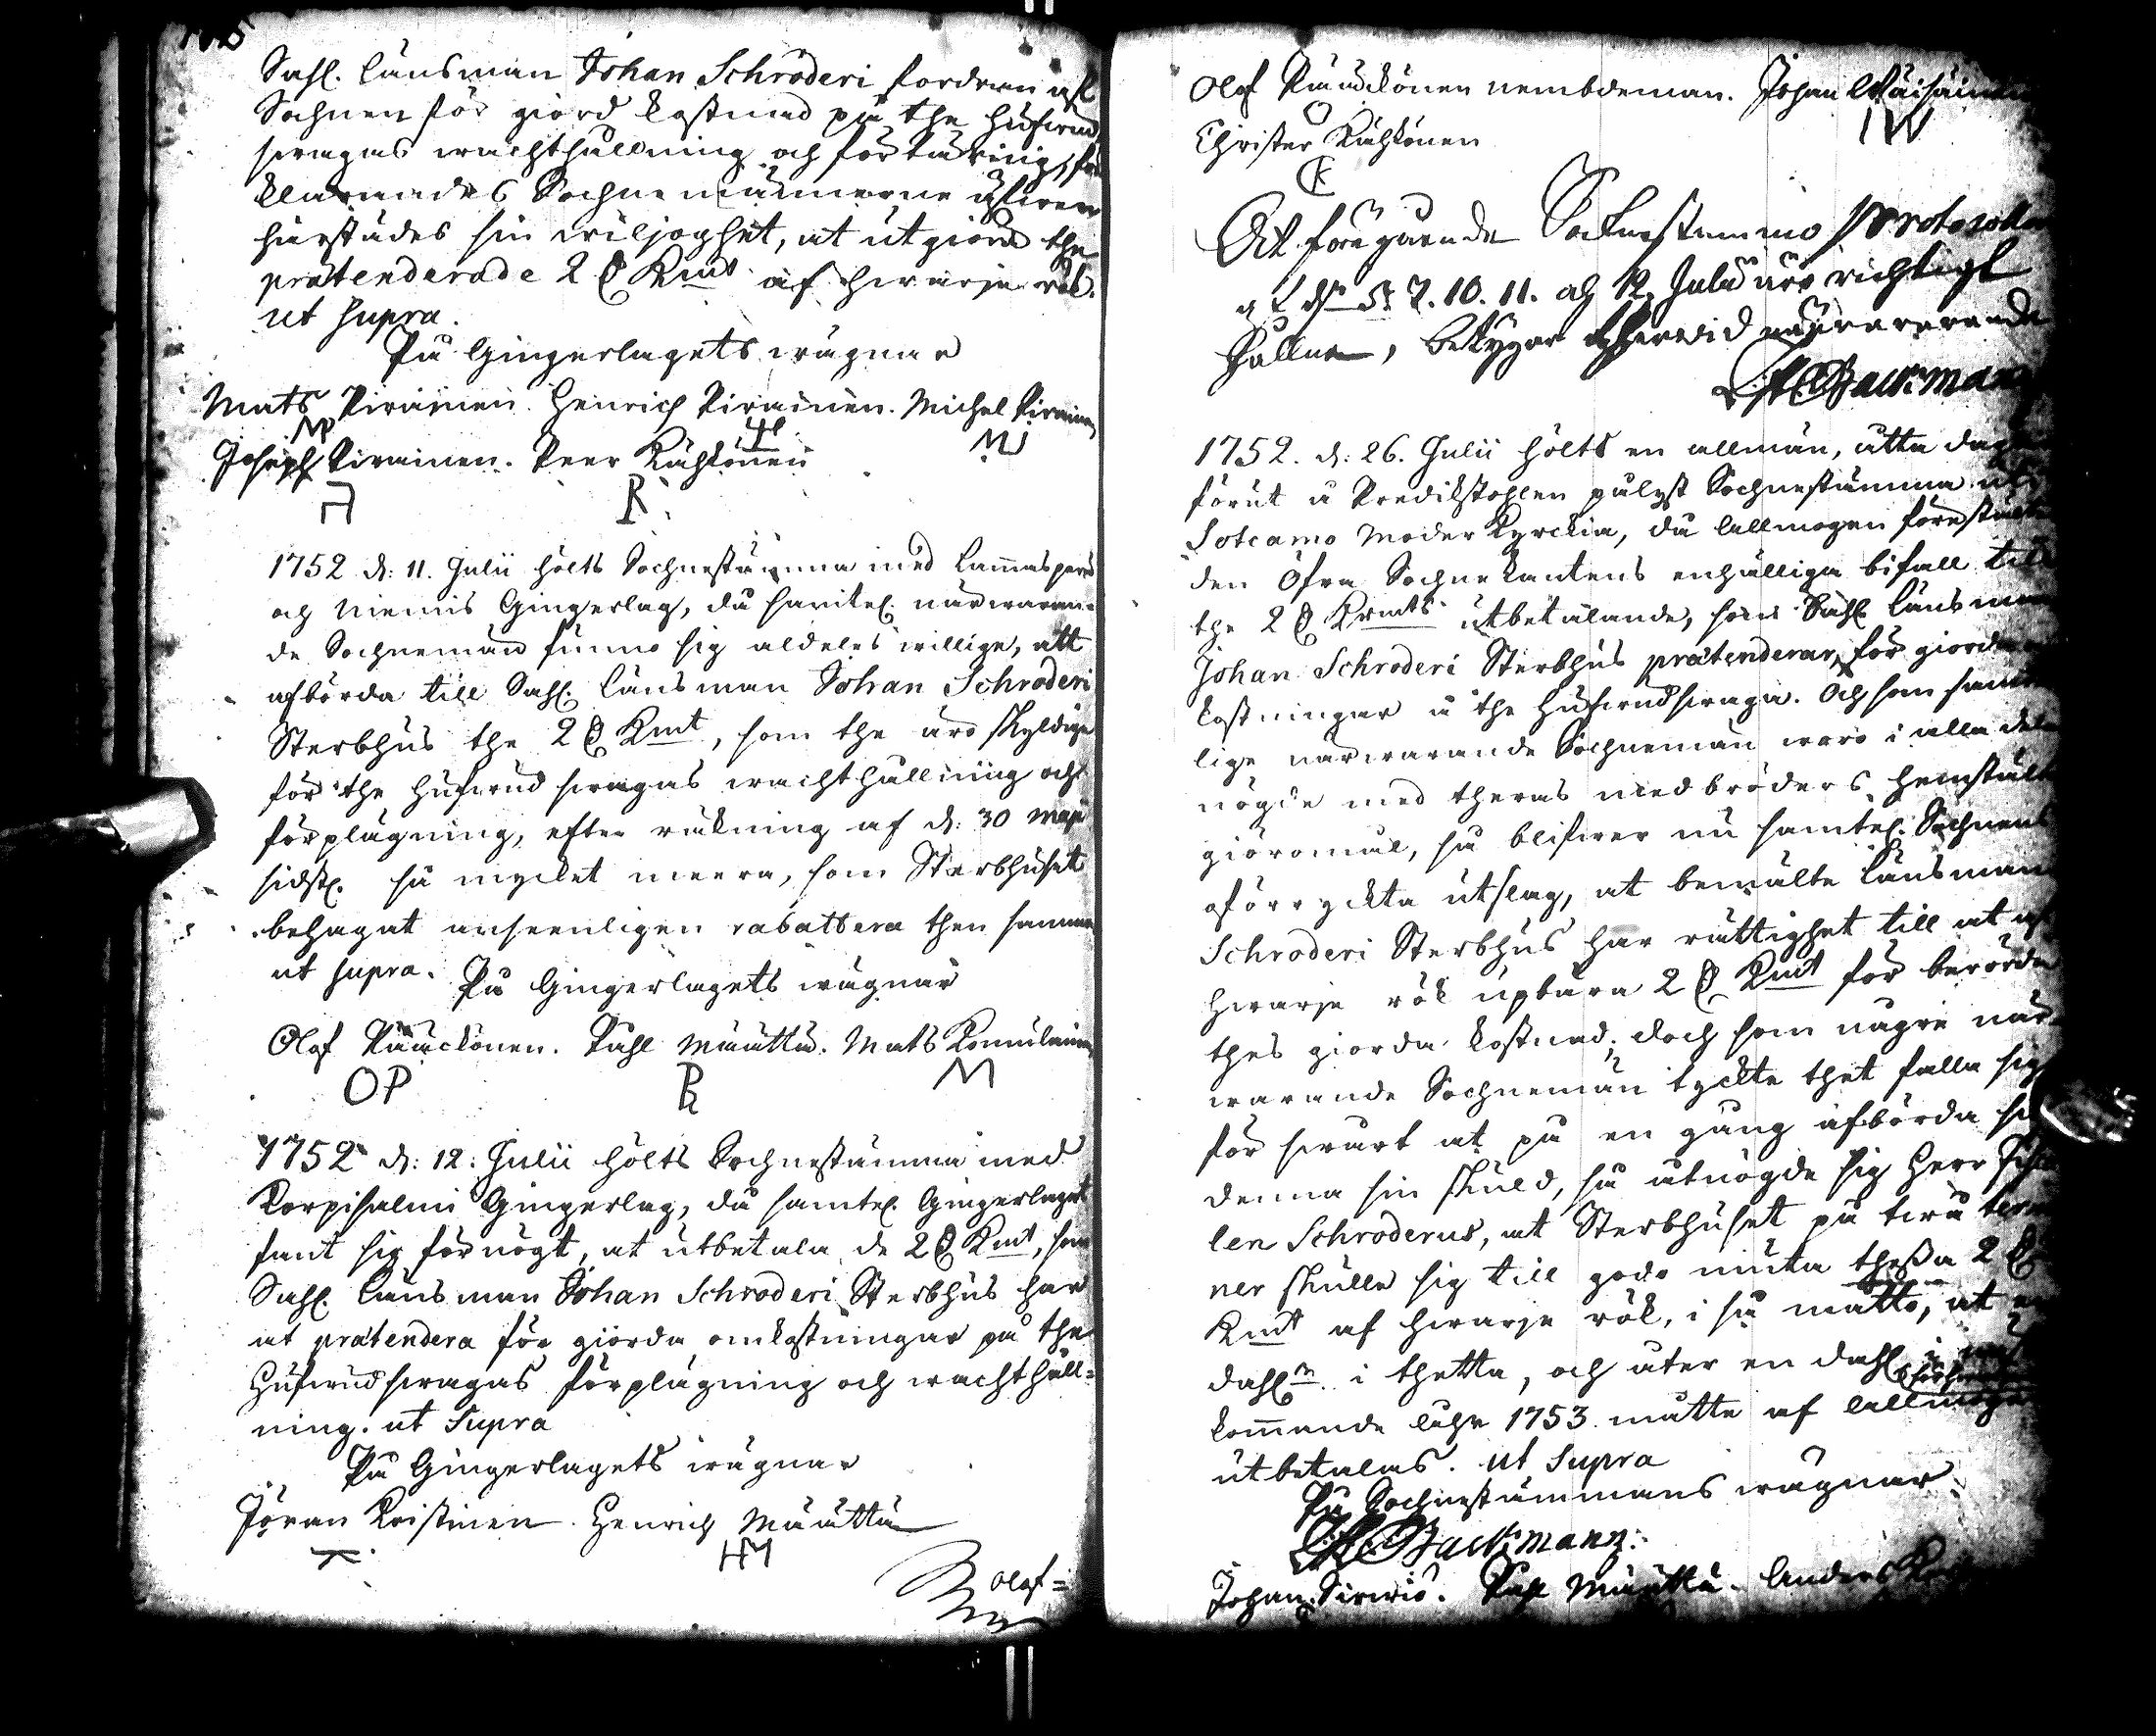 Sahl. länsman Johan Schröderi fordran af
Sochnen för giord kostnad på the hufwud
swagas wachthållning och förtäring, för
klarandes Sochnemännerne äfwen
härstädes sin wiljoghet, at utgiöra the
prætenderade 2 D. Kmt af hwarje rök.
ut supra.
På Gingerlagets wägnar
Mats Pirainen. Henrich Pirainen. Michel Pirainen
MP
Joseph Pirainen. Peer Kähkönen
1752 d: 11. Julii hölts Sochnestämma med Lammasperä
och Niemis Gingerlag, då samtel. närwaran-
de Sochnemän funno sig aldeles willige, att
afbörda till Sahl. länsman Johan Schroderi
Sterbhus the 2 D. Kmt, som the äro skyldige
för the hufwud swagas wachthållning och
förplägning, efter räkning af d: 30 Maji
sidstl. så mycket meera, som Sterbhuset
behagat anseenligen rabattera then samma
ut supra. På Gingerlagets wägnar
Olof Pääckönen. Påhl Määttä. Mats Komulainen
OP M
1752 d: 12: Julii hölts Sochnestämma med
Korpisalmi Gingerlag, då samtel. Gingerlaget
fant sig förnögt, at utbetala de 2 D. Kmt, som
Sahl. länsman Johan Schroderi Sterbhus har
at prætendera för giorda omkostningar på the
Hufwudswagas förplägning och wachthåll=
ning. ut Supra
På Gingerlagets wägnar
Jöran Kristinen. Henrich Määttä
HM
Olof=
Olof Pääckönen nembdeman. Johan Wäisäinen
O IW
Christer Kähkönen
CK
At föregående Socknestemmo Protocoller
af d. 5. 7. 10. 11. och 12. Julii äro richtigt
hållne, betygar wid närwarande
Backman
1752. d: 26. Julii hölts en allmän, åtta dagar
förut å Predikstohlen pulyst Sochnestämma uti
Sotcamo Moder Kyrckia, då allmogen förestältes
den Öfra Sochnekantens enhälliga bifall till
the 2 D. Kmts utbetalande, som Sahl länsman
Johan Schroderi Sterbhus prætenderar, för giorda
kostningar å the hufwudswaga. Och som samt-
lige närwarande Sochnemän woro i alla delar
nögde med theras medbröders hemstält
giöromål, så blifwer nu samtel. Sochnens
oförryckta utslag, at bemälte länsman
Schroderi Sterbhus har rättighet till at af
hwarje rök upbära 2 D. Kmt för berörda
thes giorda kostnad; doch som någre när-
warande Sochnemän tyckte thet falla sig
för swårt at på en gång afbörda
denna sin skuld, så åtnögde sig Herr
len Schroderus, at Sterbhuset på twå termi
ner skulle sig till godo niuta theßa 2 D.
Kmt af hwarje rök, i så matto, at en
dahlr i thetta, och åter en dahl i
kommande åhr 1753 måtte af allmogen
utbetalas. ut Supra
På Sochnestämmans wägnar
Backmann:
Johan Sirwiö. Påhl Määttä. Anders